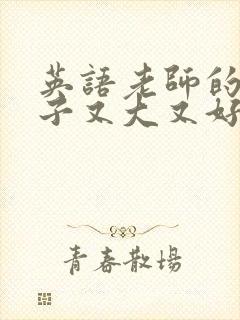 英語老師的
子又大又好
青春散場